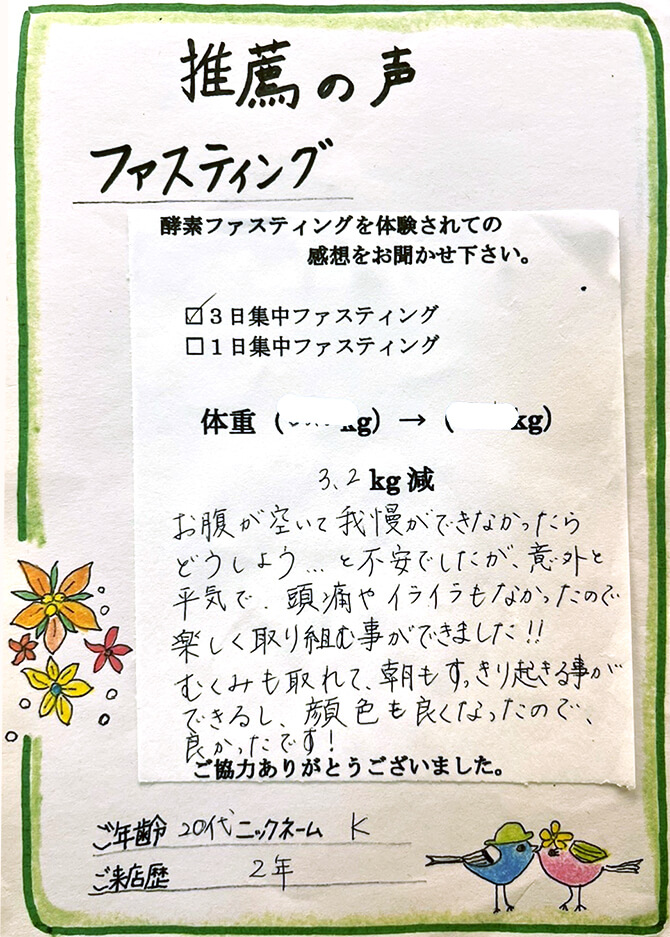 推薦の声
ファスティング
酵素ファスティングを体験されての
感想をお聞かせ下さい。
☑3日集中ファスティング
□1日集中ファスティング
体重( kg)→( kg)
3.2kg減
お腹が空いて我慢ができなかったら
どうしよう…と不安でしたが、意外と
平気で、頭痛やイライラもなかったので
楽しく取り組む事ができました!!
むくみも取れて、朝もすっきり起きる事が
できるし、顔色も良くなったので、
良かったです!
ご協力ありがとうございました。
ご年齢 20代 ニックネーム K
ご来店歴 2年